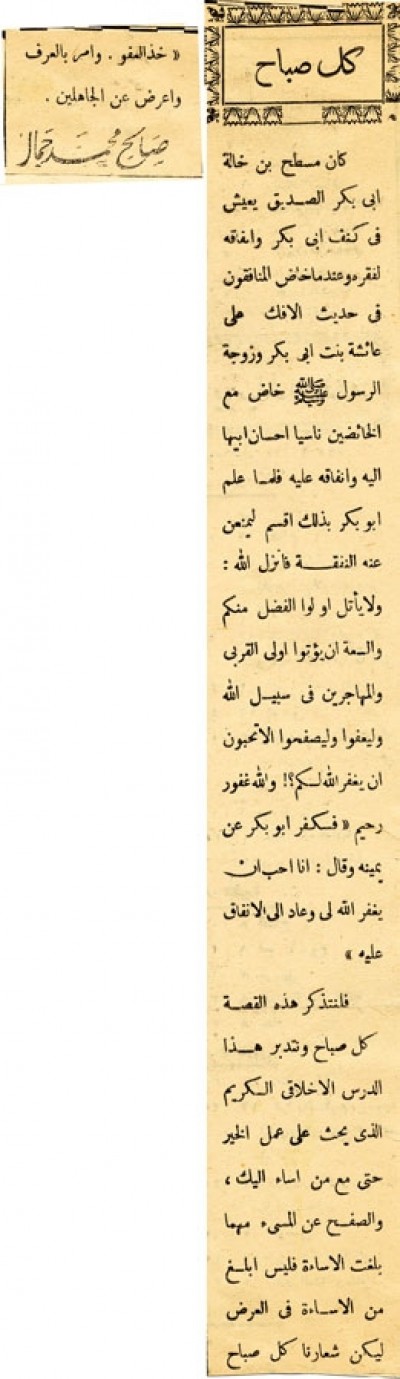 كل صباح
كان مسطح بن خالة
ابى بكر الصديق يعيش
فى كنف ابى بكر وانفاقه
لفقره وعندما خاض المنافقون
فى حديث الافك على
عائشة بنت ابى بكر وزوجة
الرسول ﷺ خاض مع
الخائضين ناسيا احسان ابيها
اليه وانفاقه عليه فلما علم
ابو بكر بذلك اقسم ليمنعن
عنه النفقة فانزل الله :
ولا يأتل اولوا الفضل منكم
والسعة ان يؤتوا اولى القربى
والمهاجرين فى سبيل الله
وليعفوا وليصفحوا الا تحبون
ان يغفر الله لكم؟! والله غفور
رحيم « فكفر ابو بكر عن
يمينه وقال : انا احب ان
يغفر الله لى وعاد الى الانفاق
عليه »
فلنتذكر هذه القصة
كل صباح ونتدبر هذا
الدرس الاخلاقى الكريم
الذى يحث على عمل الخير
حتى مع من اساء اليك ،
والصفح عن المسىء مهما
بلغت الاساءة فليس ابلغ
من الاساءة فى العرض
ليكن شعارنا كل صباح
« خذ العفو . وامر بالعرف
واعرض عن الجاهلين .
صالح محمد جمال